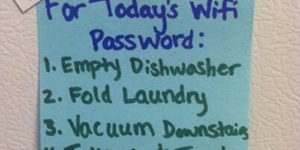 For Today's Wifi
Password:
1. Empty Dishwasher
2. Fold Laundry
3. Vacuum Downstairs